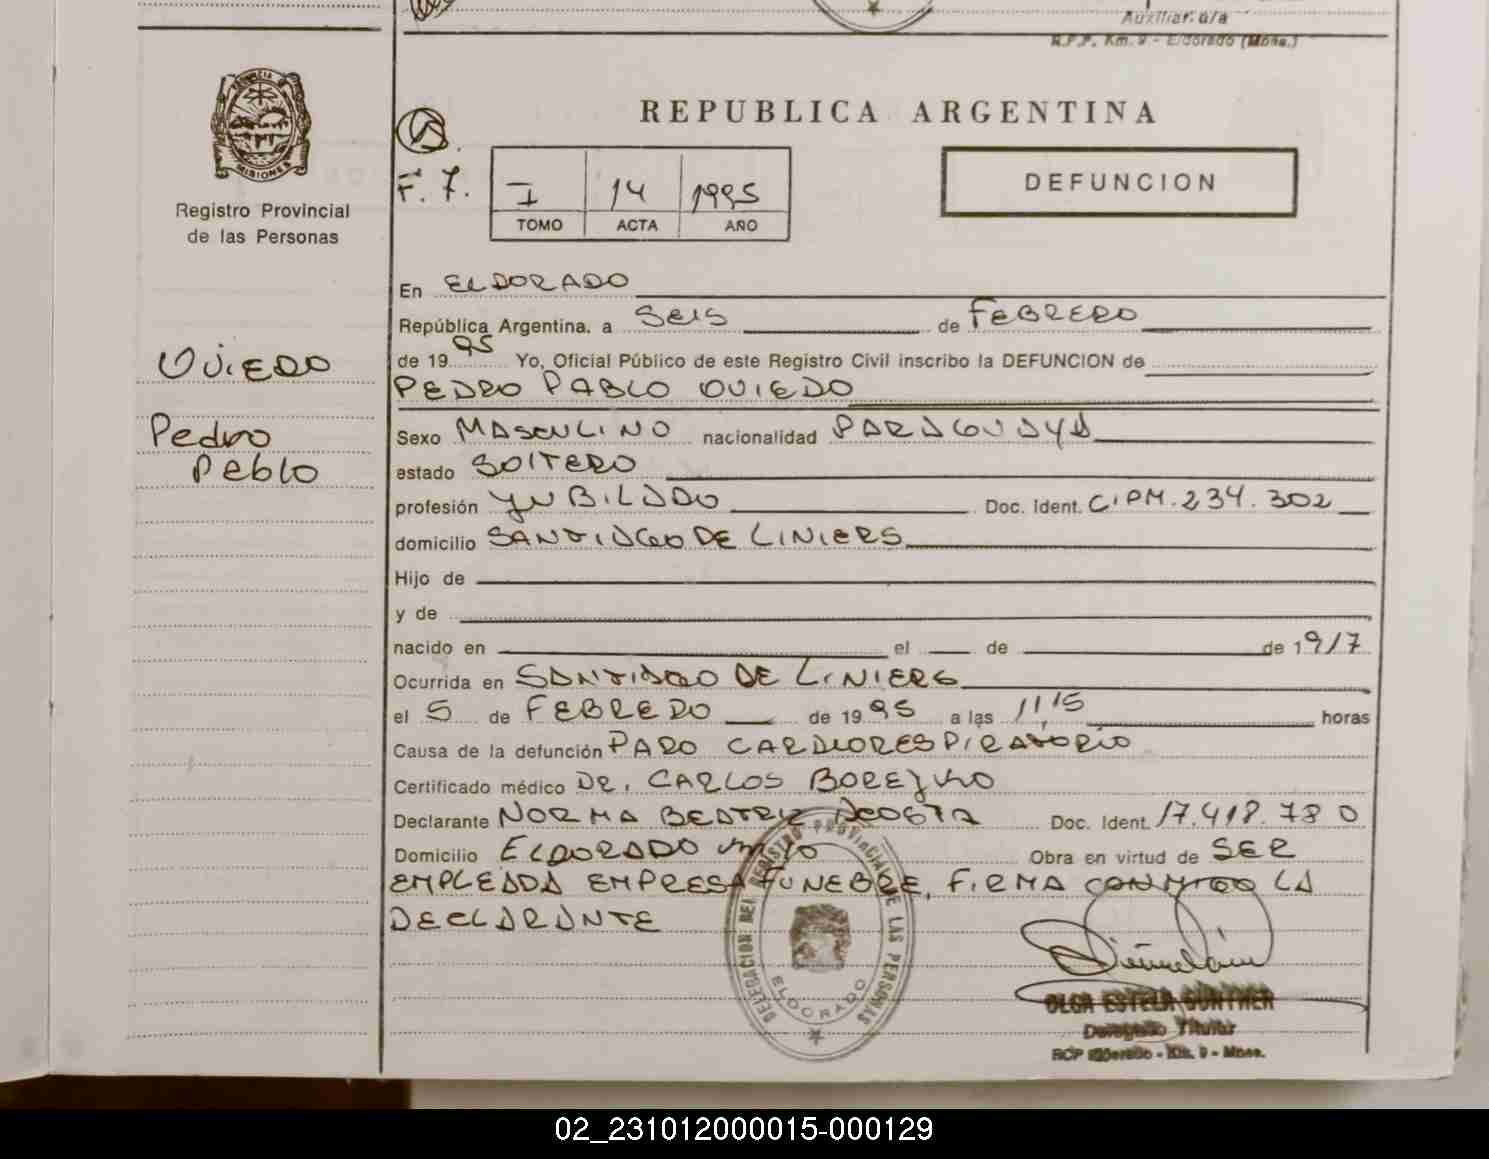 Auxiliar a/a
R.P.P. Km. 9 - Eldorado (Mnes.)
PROVINCIA DE
MISIONES
Registro Provincial
de las Personas
REPUBLICA ARGENTINA
F. 7.
I 14 1995
TOMO ACTA AÑO
DEFUNCION
OViEDO
Pedro
Peblo
En ELDORADO
República Argentina, a SEIS de FEBRERO
de 19 95 Yo, Oficial Público de este Registro Civil inscribo la DEFUNCION de
PEDRO PABLO OVIEDO
Sexo MASCULINO nacionalidad PARAGUAYA
estado SOLTERO
profesión JUBILADO Doc. Ident. C.I.PM.234.302
domicilio SANTIAGO DE LINIERS
Hijo de
y de
nacido en el de de 1917
Ocurrida en SANTIAGO DE LINIERS
el 5 de FEBRERO de 19 95 a las 11,15 horas
Causa de la defunción PARO CARDIORESPIRATORIO
Certificado médico DR. CARLOS BOREJKO
Declarante NORMA BEATRIZ ACOSTA Doc. Ident. 17.418.780
Domicilio ELDORADO Obra en virtud de SER
EMPLEADA EMPRESA FUNEBRE, FIRMA CONMIGO LA
DECLARANTE
DELEGACION DEL REGISTRO PROVINCIAL DE LAS PERSONAS
ELDORADO
OLGA ESTELA GUNTHER
Delegado Titular
RCP Eldorado - Km. 9 - Mnes.
02_231012000015-000129